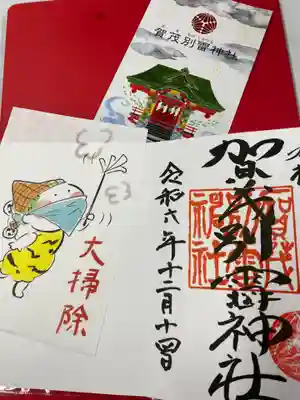 賀茂別雷神社
大掃除
賀茂別雷神社
令和六年十二月十四日